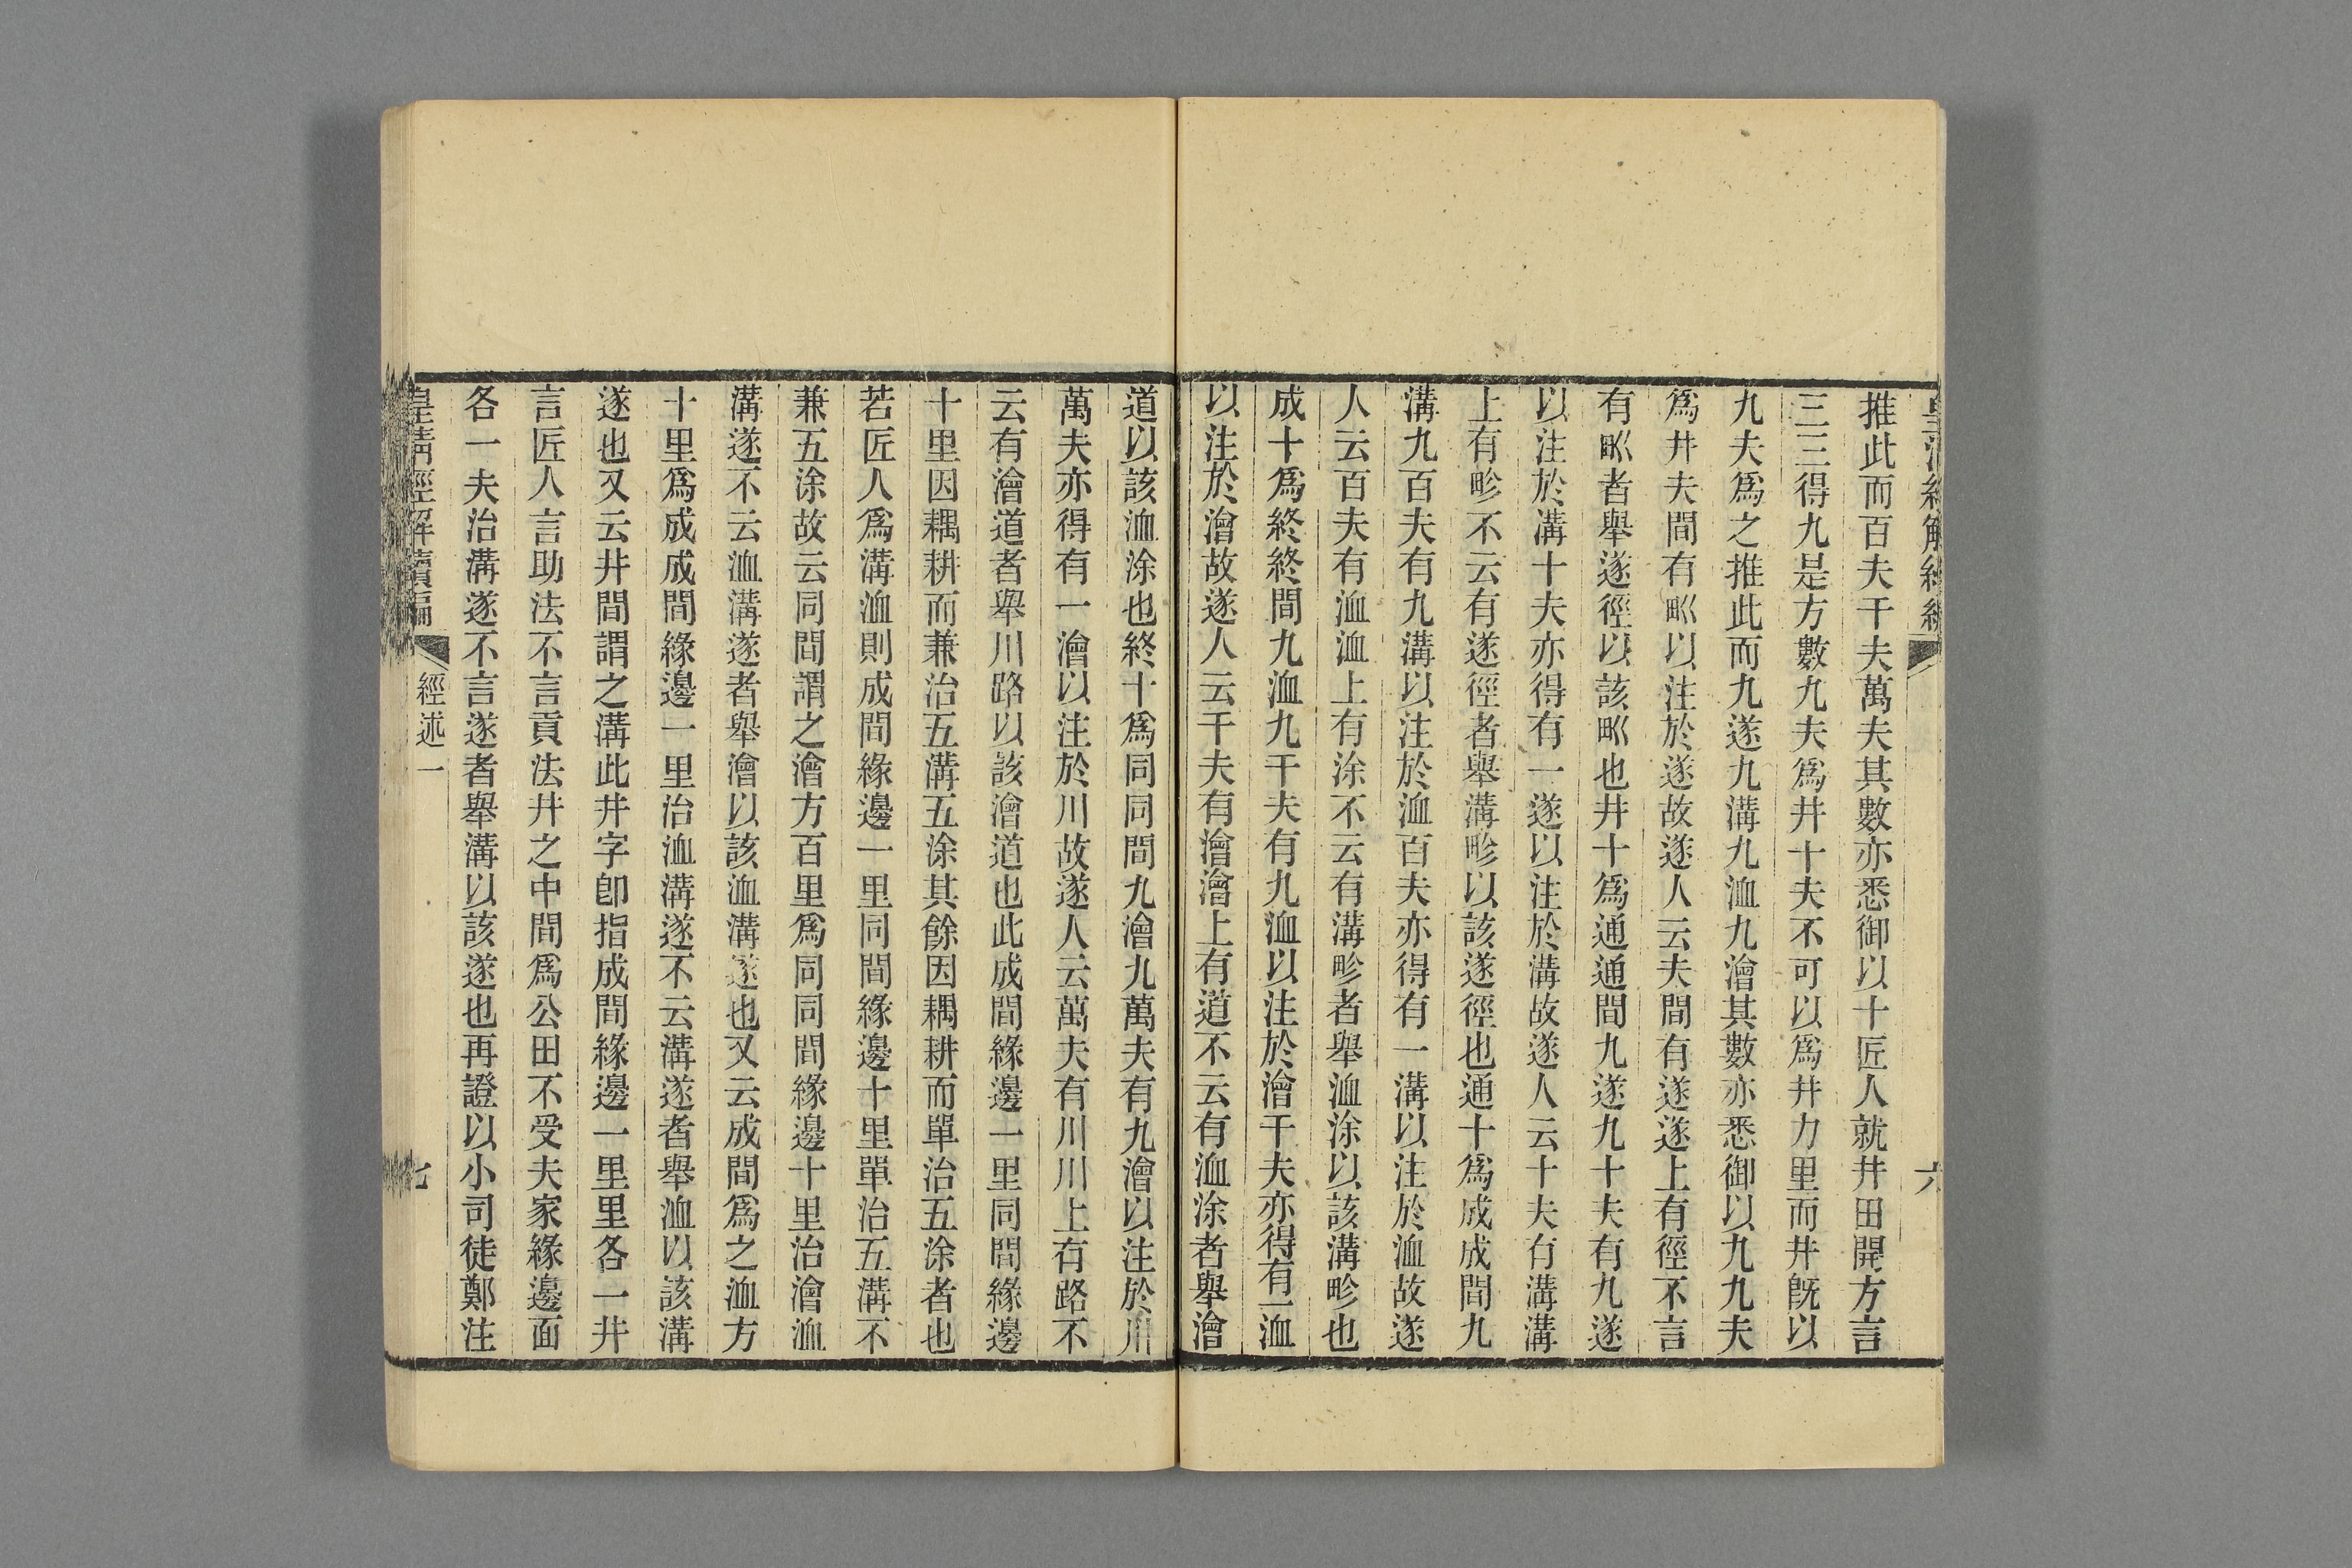 推此而百夫千夫萬夫其數亦悉御以十匠人就井田開方言
三三得九是方數九夫爲井十夫不可以爲井力里而井旣以
九夫爲之推此而九遂九溝九洫九澮其數亦悉御以九九夫
爲井夫間有𤰕以注於遂故遂人云夫間有遂遂上有徑不言
有𤰕者舉遂徑以該𤰕也井十爲通通間九遂九十夫有九遂
以注於溝十夫亦得有一遂以注於溝故遂人云十夫有溝溝
上有畛不云有遂徑者舉溝畛以該遂徑也通十爲成成間九
溝九百夫有九溝以注於洫百夫亦得有一溝以注於洫故遂
人云百夫有洫洫上有涂不云有溝畛者舉洫涂以該溝畛也
成十爲終終間九洫九千夫有九洫以注於澮千夫亦得有一洫
以注於澮故遂人云千夫有澮澮上有道不云有洫涂者舉澮
道以該洫涂也終十爲同同間九澮九萬夫有九澮以注於川
萬夫亦得有一澮以注於川故遂人云萬夫有川川上有路不
云有澮道者舉川路以該澮道也此成間緣邊一里同間緣邊
十里因耦耕而兼治五溝五涂其餘因耦耕而單治五涂者也
若匠人爲溝洫則成間緣邊一里同間緣邊十里單治五溝不
兼五涂故云同間謂之澮方百里爲同同間緣邊十里治澮洫
溝遂不云洫溝遂者舉澮以該洫溝遂也又云成間爲之洫方
十里爲成成間緣邊一里治洫溝遂不云溝遂者舉洫以該溝
遂也又云井間謂之溝此井字卽指成間緣邊一里里各一井
言匠人言助法不言貢法井之中間爲公田不受夫家緣邊面
各一夫治溝遂不言遂者舉溝以該遂也再證以小司徒鄭注
皇淸經解續編
經述一
七